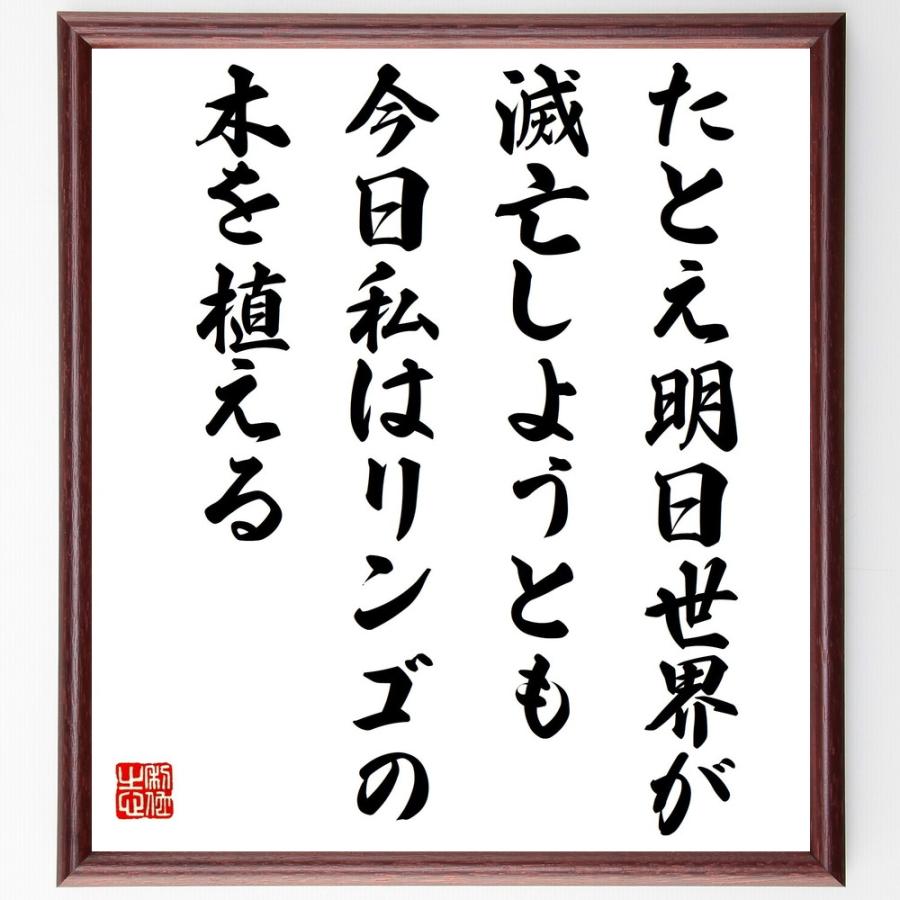 たとえ明日世界が
滅亡しようとも
今日私はリンゴの
木を植える